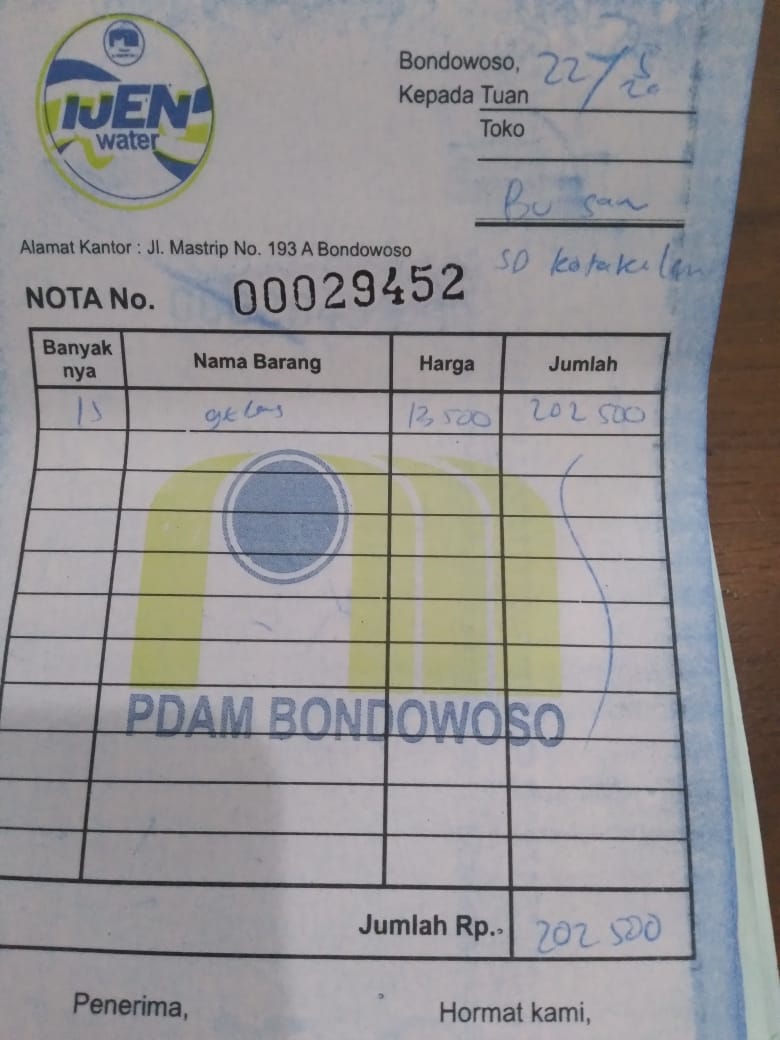 IJEN
water
Bondowoso, 22/5
20
Kepada Tuan
Toko
Bu San
Alamat Kantor : Jl. Mastrip No. 193 A Bondowoso
SD kotakulon
NOTA No. 00029452
Banyak nya Nama Barang Harga Jumlah
15 gelas 13 500 202 500
PDAM BONDOWOSO
Jumlah Rp. 202 500
Penerima, Hormat kami,